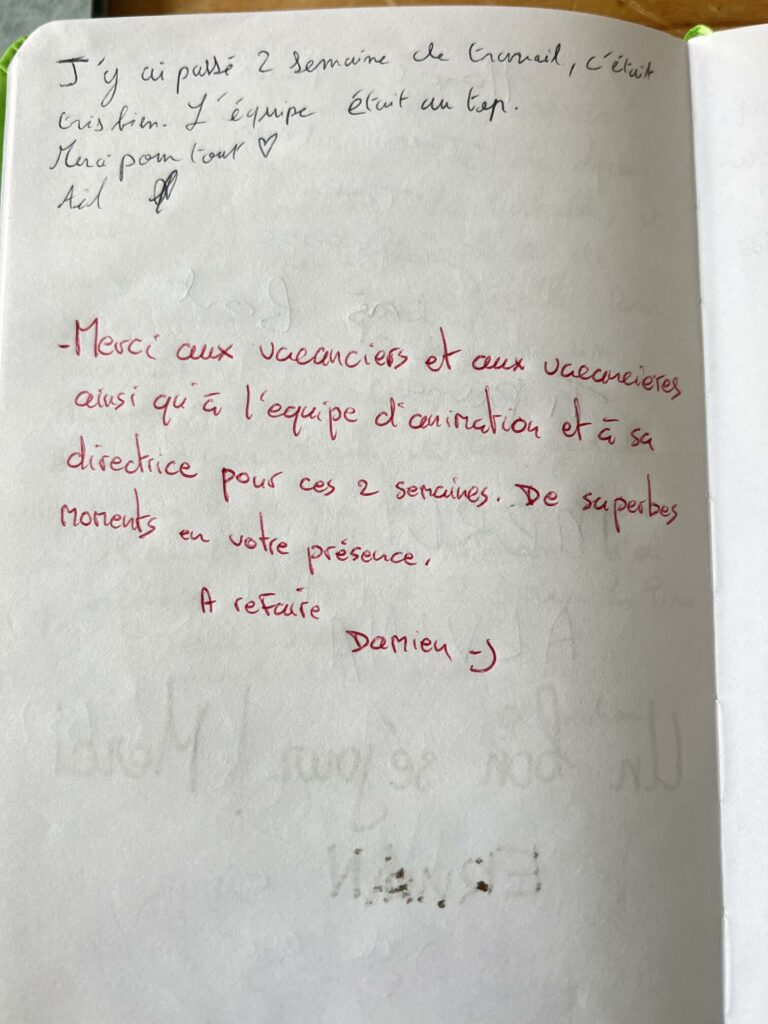 J'y ai passé 2 semaine de travail, c'était
tris bien. L'équipe était au top.
Merci pour tout ♡
- Merci aux vacanciers et aux vacancieres
ainsi qu'à l'equipe d'animation et à sa
directrice pour ces 2 semaines. De superbes
moments en votre présence.
A refaire
Damien -)
Un bon séjour ! Merci
ERWAN